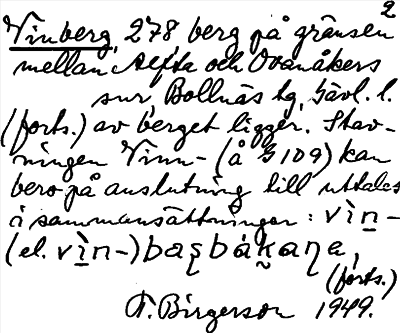 2
Vinberg, 278 berg på gränsen
mellan Alfta och Ovanåkers
snr, Bollnäs tg, Gävl. l.
(forts.) av berget ligger. Stav-
ningen Vinn- (å G 109) kan
bero på anslutning till uttalet
i sammansättningar: vìn-
(el. vìn-) bas̨bákana,
(forts.)
F. Birgerson 1949.